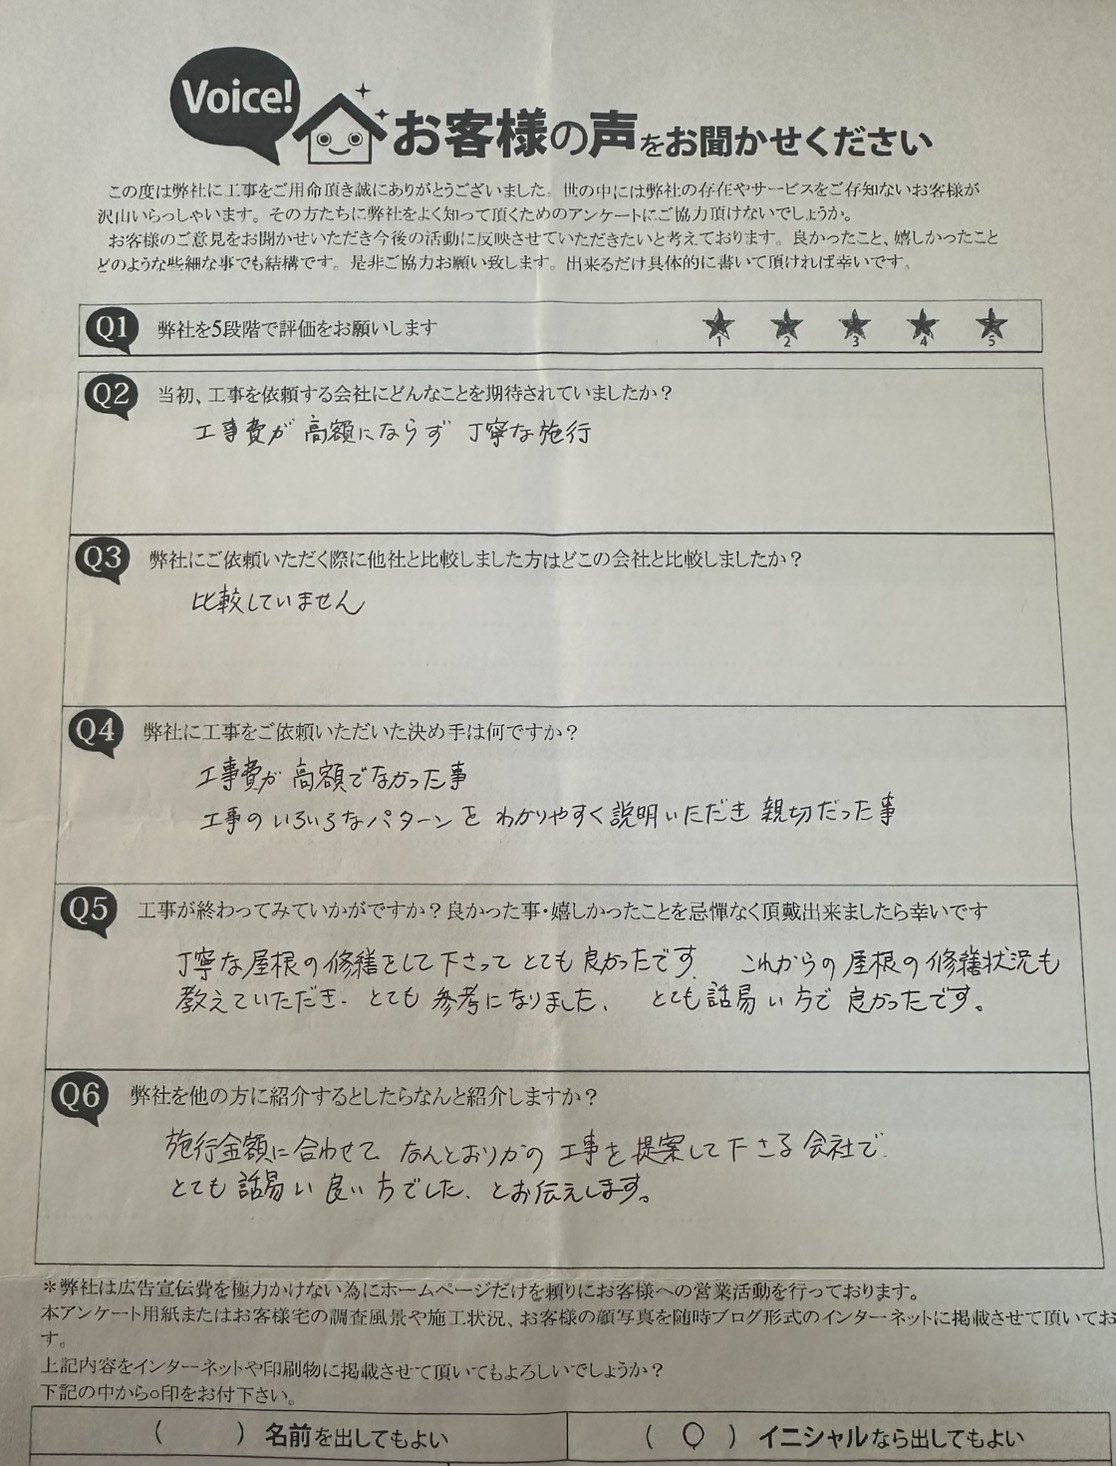 Voice!
お客様の声をお聞かせください
この度は弊社に工事をご用命頂き誠にありがとうございました。世の中には弊社の存在やサービスをご存知ないお客様が
沢山いらっしゃいます。その方たちに弊社をよく知って頂くためのアンケートにご協力頂けないでしょうか。
お客様のご意見をお聞かせいただき今後の活動に反映させていただきたいと考えております。良かったこと、嬉しかったこと
どのような些細な事でも結構です。是非ご協力お願い致します。出来るだけ具体的に書いて頂ければ幸いです。
Q1 弊社を5段階で評価をお願いします ★ ★ ★ ★ ★
1 2 3 4 5
Q2 当初、工事を依頼する会社にどんなことを期待されていましたか?
工事費が高額にならず 丁寧な施行
Q3 弊社にご依頼いただく際に他社と比較しました方はどこの会社と比較しましたか?
比較していません
Q4 弊社に工事をご依頼いただいた決め手は何ですか?
工事費が高額でなかった事
工事のいろいろなパターンを わかりやすく説明いただき 親切だった事
Q5 工事が終わってみていかがですか?良かった事・嬉しかったことを忌憚なく頂戴出来ましたら幸いです
丁寧な屋根の修繕をして下さって とても良かったです。 これからの屋根の修繕状況も
教えていただき、とても参考になりました。 とても話易い方で良かったです。
Q6 弊社を他の方に紹介するとしたらなんと紹介しますか?
施行金額に合わせて なんとおりかの 工事を提案して下さる会社で
とても話易い良い方でした、とお伝えします。
*弊社は広告宣伝費を極力かけない為にホームページだけを頼りにお客様への営業活動を行っております。
本アンケート用紙またはお客様宅の調査風景や施工状況、お客様の顔写真を随時ブログ形式のインターネットに掲載させて頂いてお
す。
上記内容をインターネットや印刷物に掲載させて頂いてもよろしいでしょうか?
下記の中から○印をお付下さい。
( ) 名前を出してもよい ( ○ ) イニシャルなら出してもよい